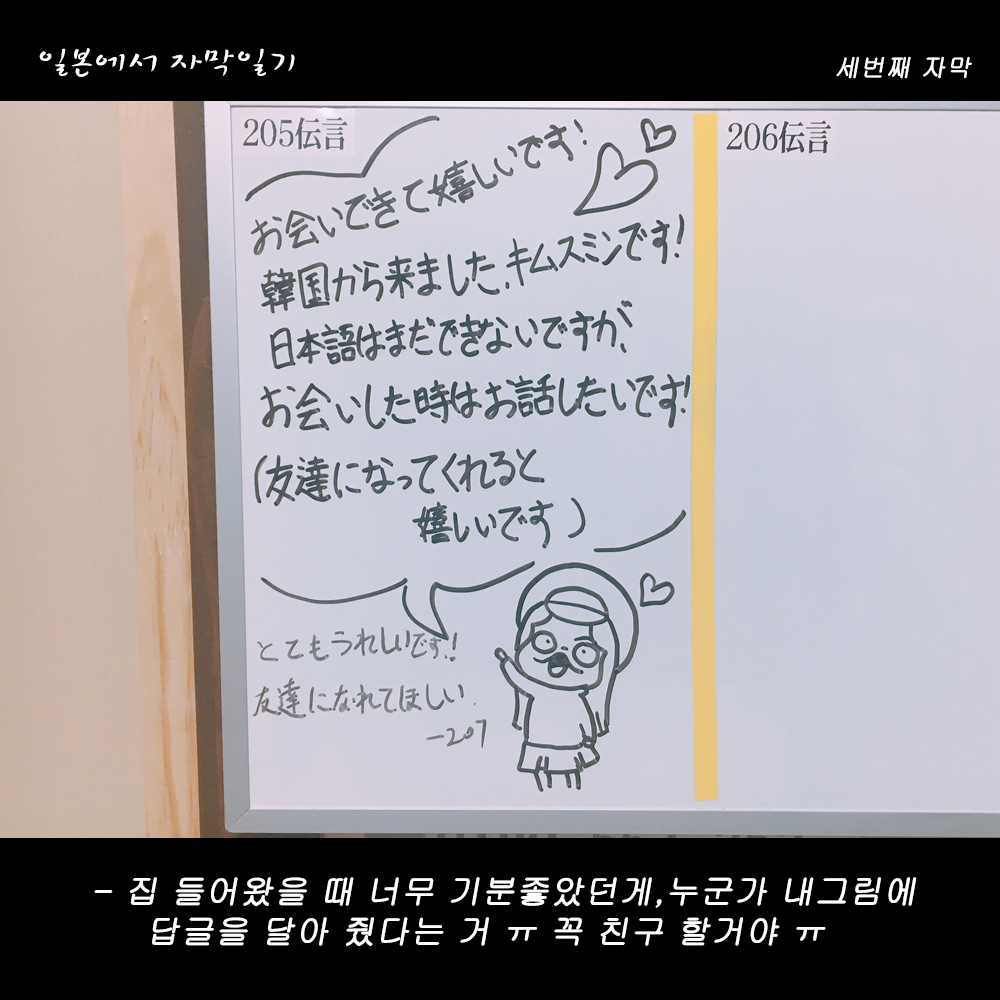 일본에서 자막일기
세번째 자막
205伝言
206伝言
お会いできて嬉しいです!
韓国から来ました、キムスミンです!
日本語はまだできないですが、
お会いした時はお話したいです!
(友達になってくれると
嬉しいです)
とてもうれしいです!!
友達になれてほしい
-207
- 집 들어왔을 때 너무 기분좋았던게,누군가 내그림에
답글을 달아 줬다는 거 ㅠ 꼭 친구 할거야 ㅠ